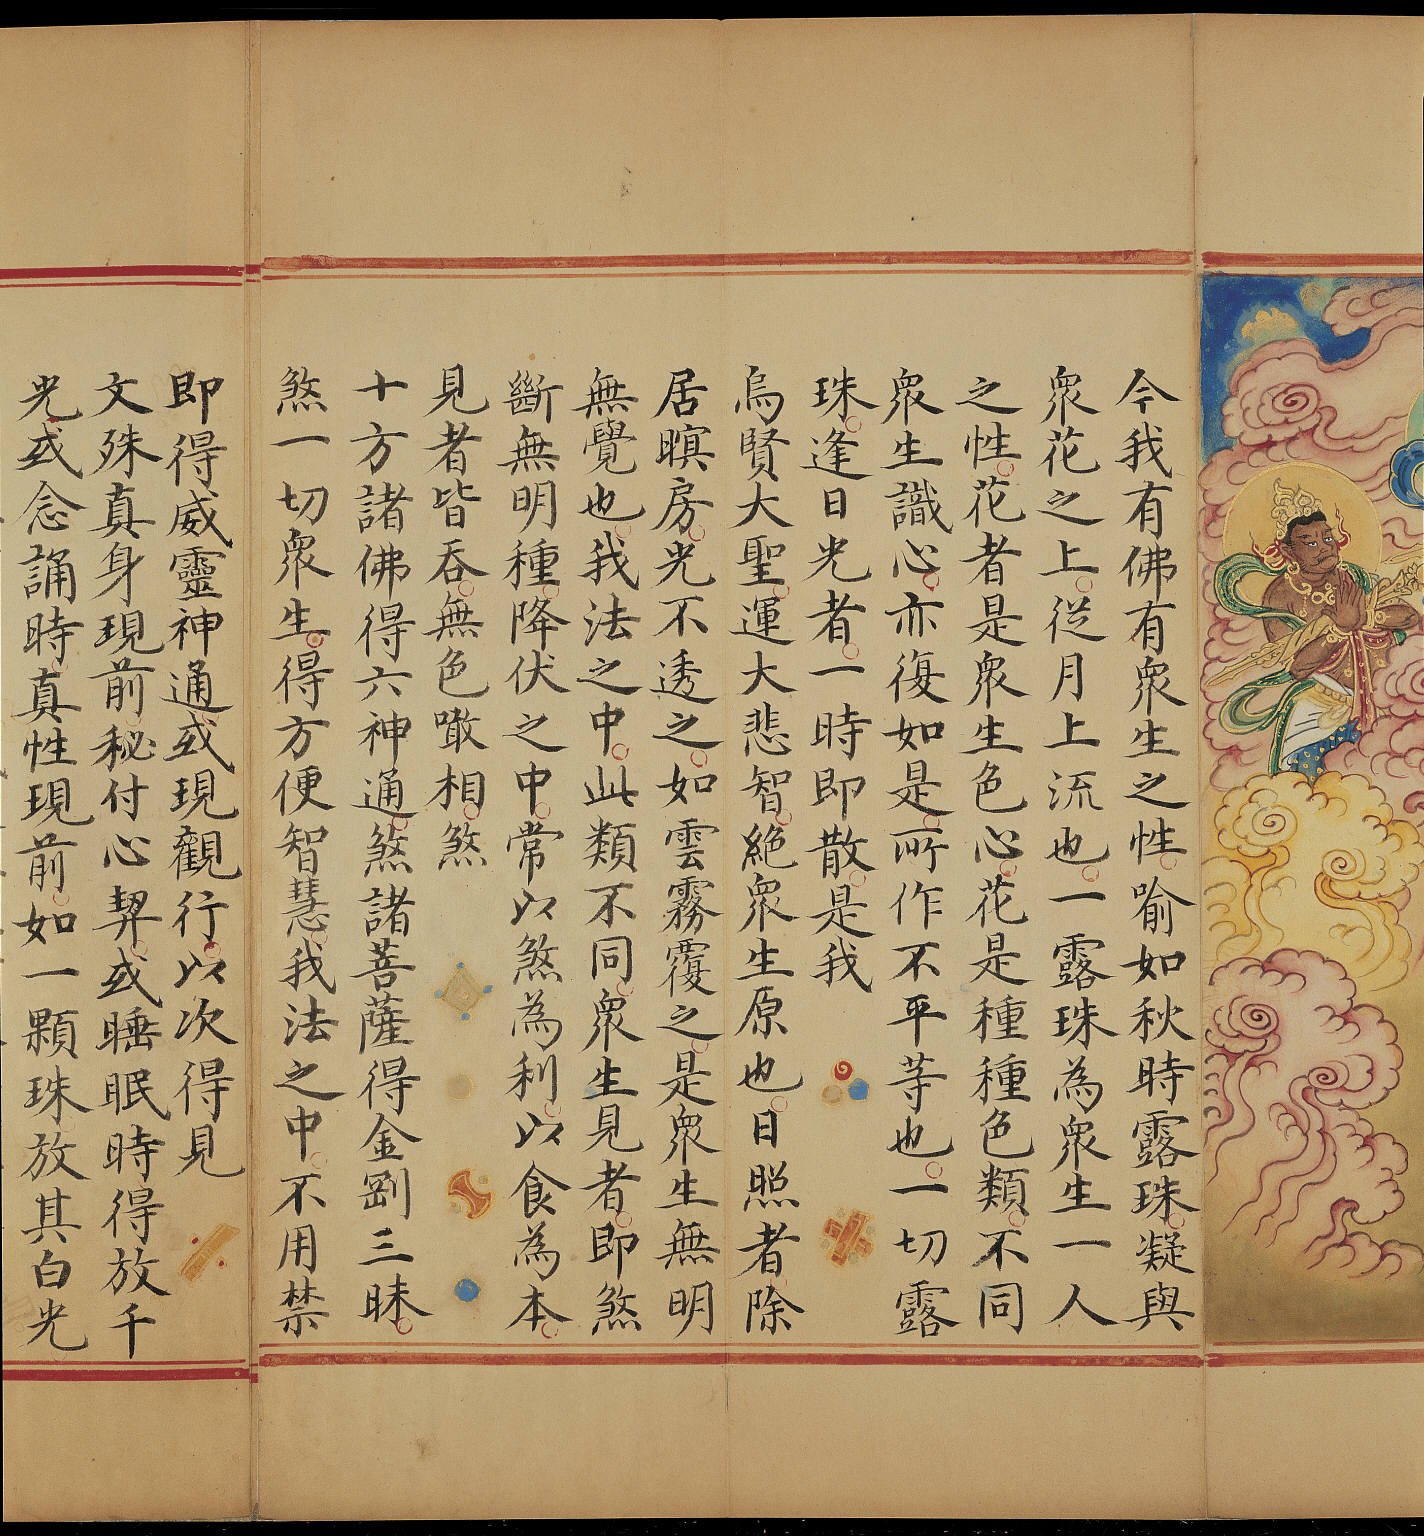 今我有佛有衆生之性喻如秋時露珠凝與
衆花之上從月上流也一露珠為衆生一人
之性花者是衆生色心花是種種色類不同
衆生識心亦復如是所作不平等也一切露
珠逢日光者一時即散是我
烏賢大聖運大悲智絶衆生原也日照者除
居暝房光不透之如雲霧覆之是衆生無明
無覺也我法之中此類不同衆生見者即煞
斷無明種降伏之中常以煞為利以食為本
見者皆吞無色噉相煞
十方諸佛得六神通煞諸菩薩得金剛三昧
煞一切衆生得方便智慧我法之中不用禁
即得威靈神通或現觀行以次得見
文殊真身現前秘付心契或睡眠時得放千
光或念誦時真性現前如一顆珠放其白光